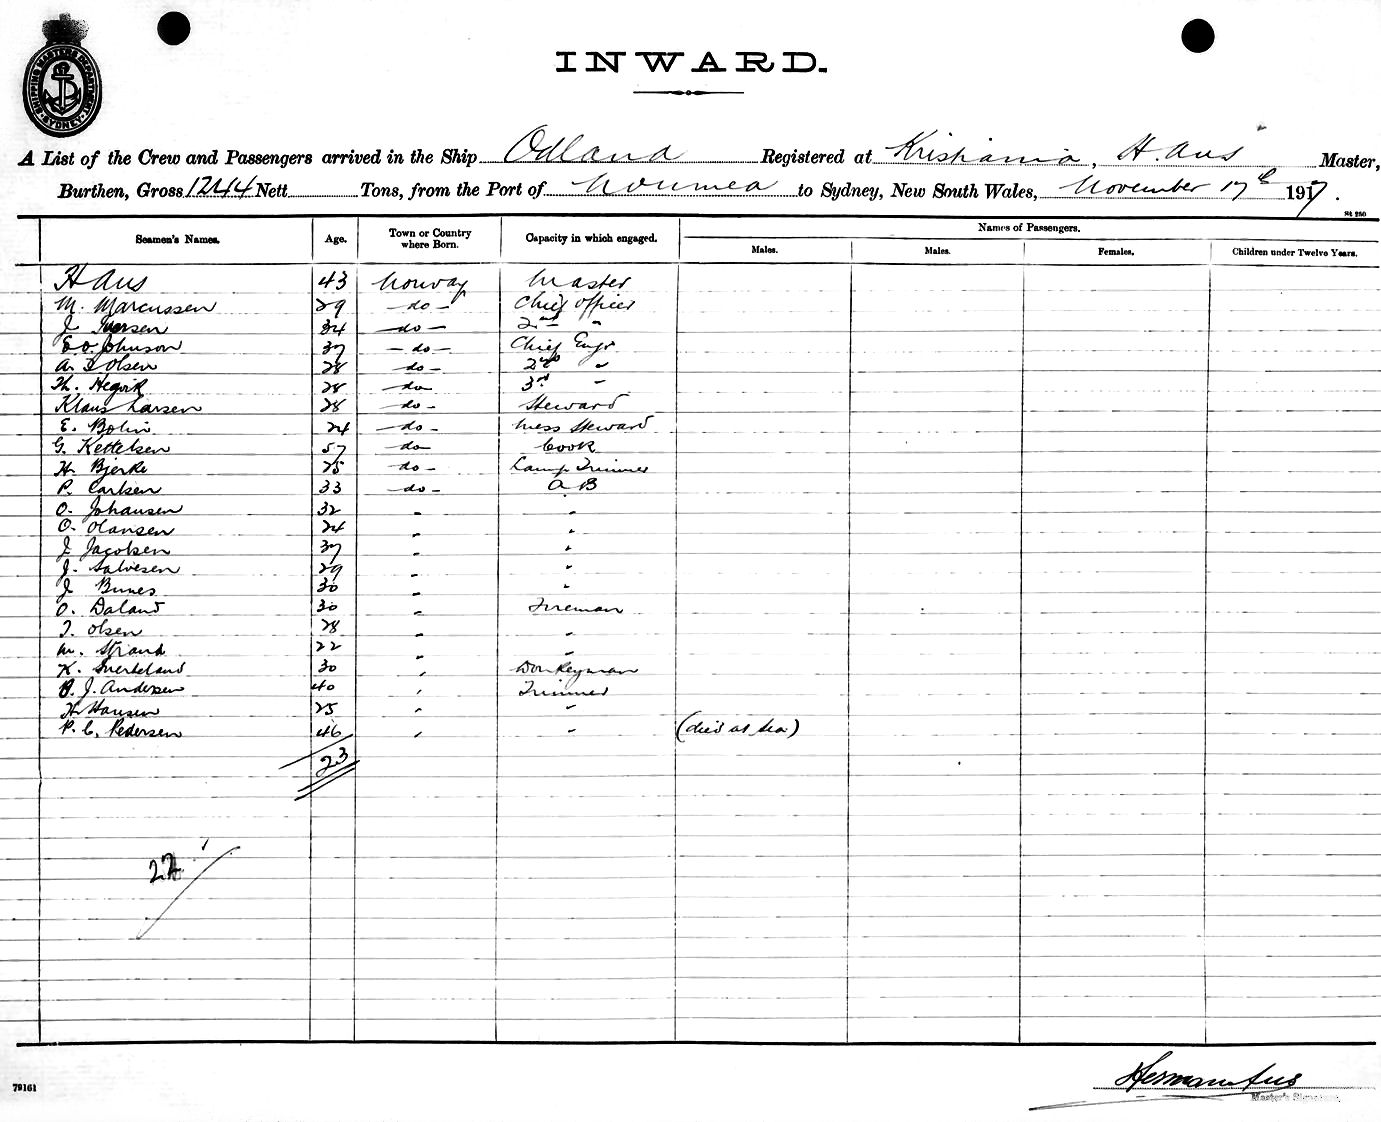 SHIPPING MASTERS DEPARTMENT SYDNEY
INWARD.
A List of the Crew and Passengers arrived in the Ship Odland Registered at Kristiania, H. Aus Master,
Burthen, Gross 1244 Nett Tons, from the Port of Noumea to Sydney, New South Wales, November 17th 1917.
St 250
Seamen's Names. Age. Town or Country where Born. Capacity in which engaged. Names of Passengers.
Males. Males. Females. Children under Twelve Years.
H Aus 43 Norway Master
M. Marcussen 29 -do- Chief Officer
J Iversen 34 -do- 2nd "
E. O. Johnson 37 -do- Chief Engr
A. Olsen 28 -do- 2nd "
Th. Hegvik 28 -do- 3rd "
Klaus Larsen 28 -do- Steward
E. Bolin 24 -do- Mess Steward
G. Kettelsen 57 -do- Cook
H. Bjerke 25 -do- Lamp Trimmer
P. Carlsen 33 -do- A B
O. Johansen 32 " "
O. Olansen 24 " "
J. Jacobsen 37 " "
J. Salvesen 29 " "
J 30 " "
O. Daland 30 " Fireman
T. Olsen 28 " "
M. Strand 22 " "
K. 30 " Donkeyman
B. J. Andersen 40 " Trimmer
H Hansen 25 " "
P. C. Pedersen 46 " " (died at sea)
23
22
Herman Aus
Master's Signature.
79161